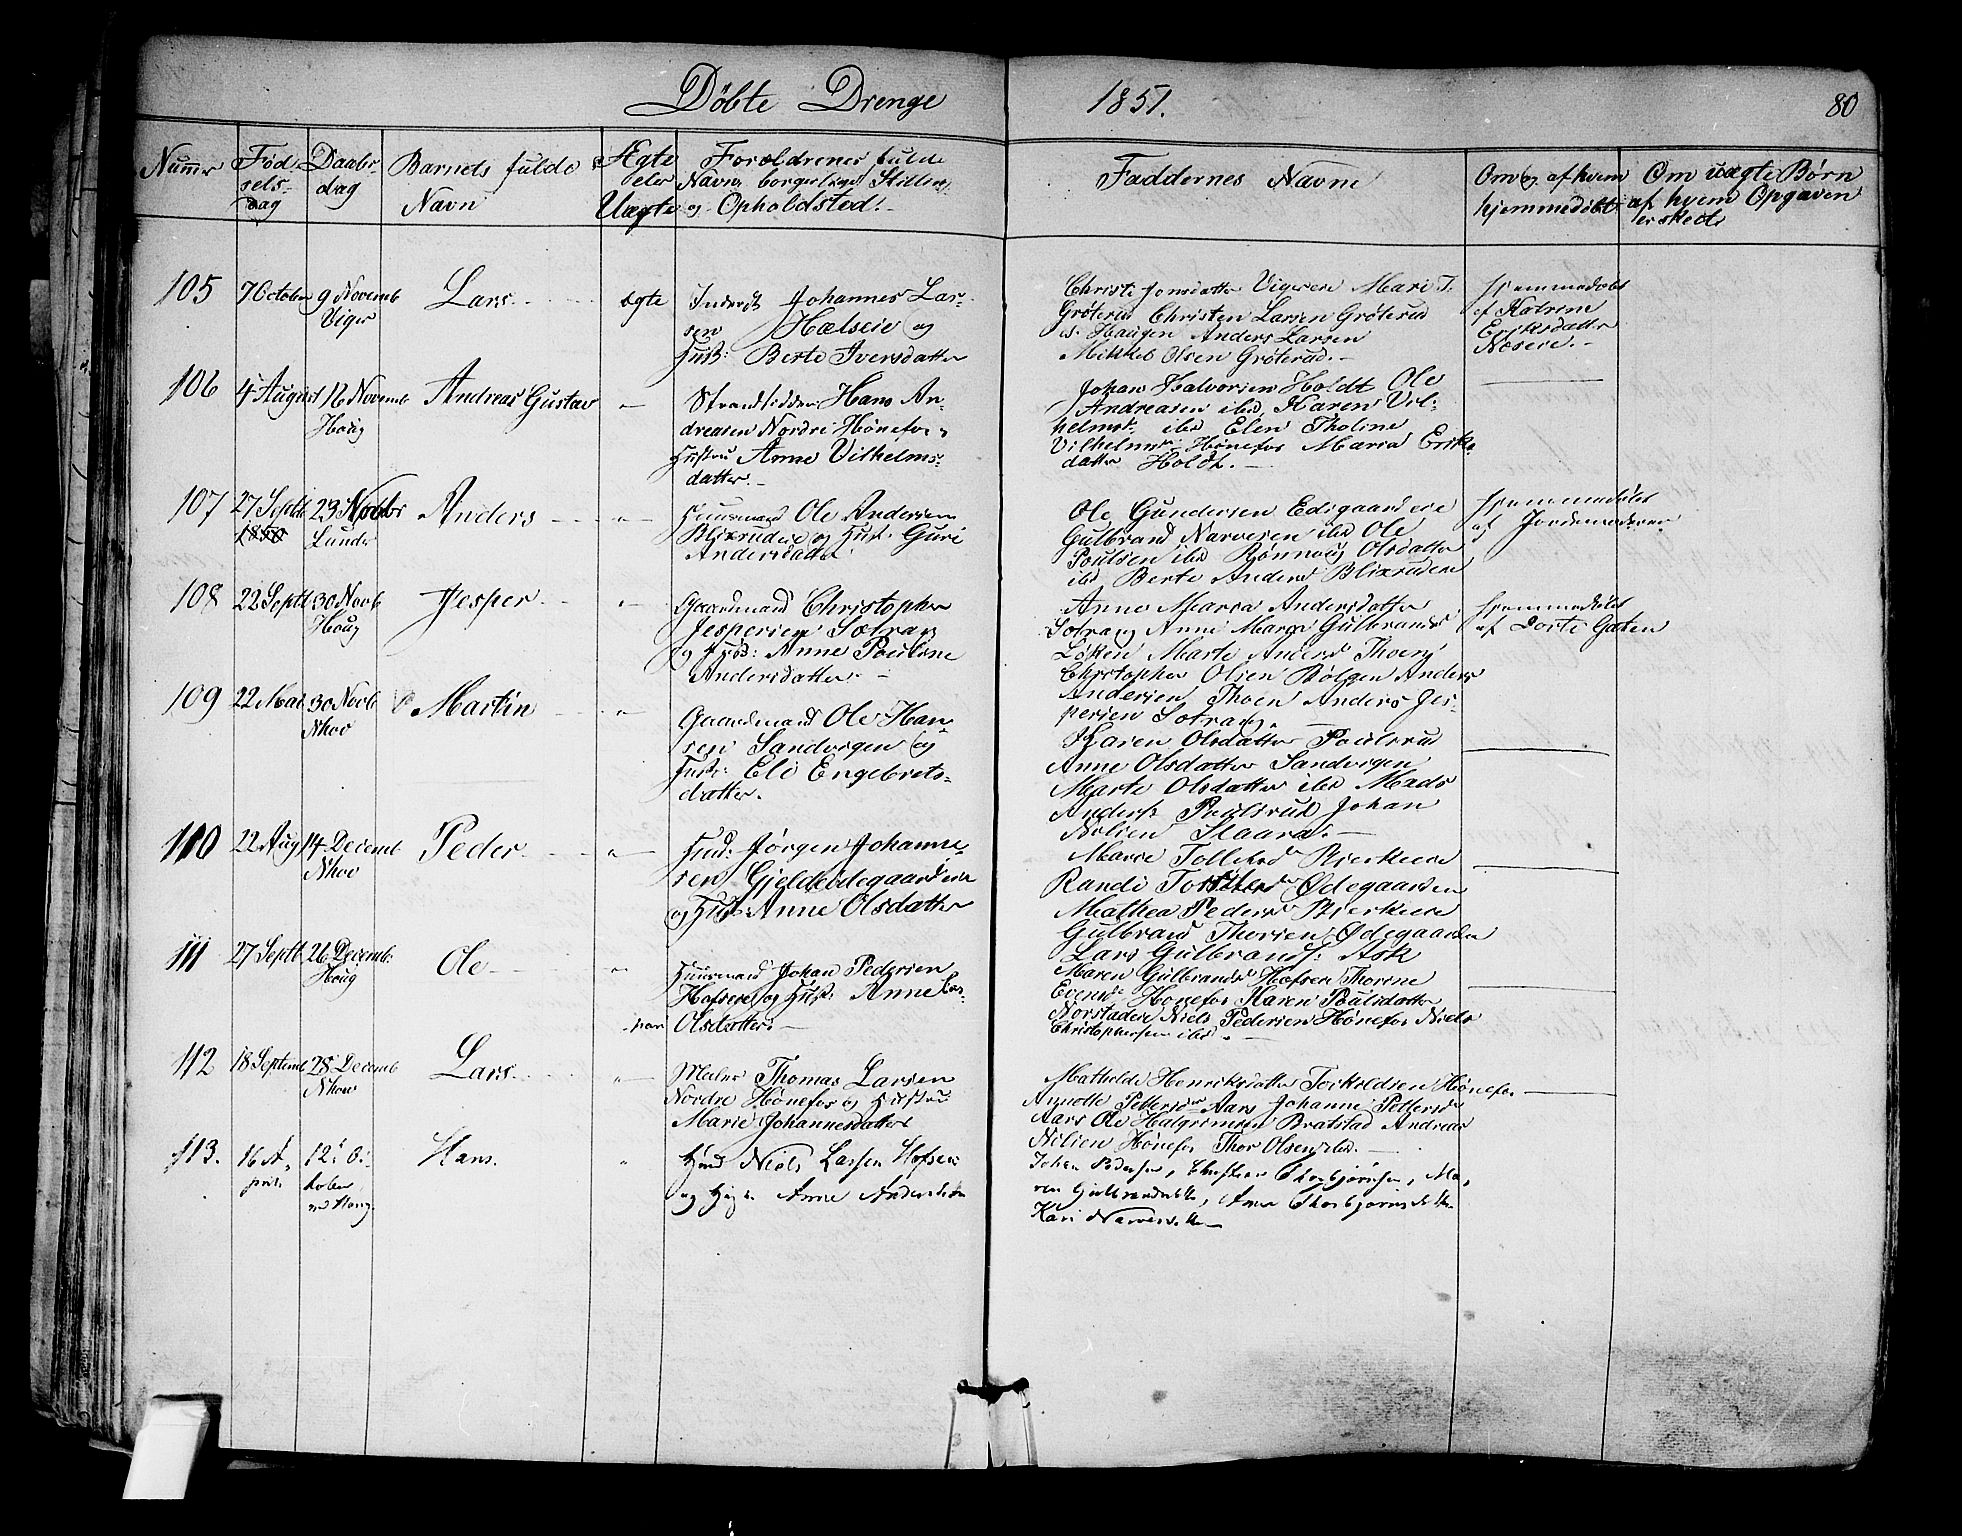 Døbte Drenge 1851. 80
Numer
Fød-
sels-
dag
Daabs-
dag
Barnets fulde
Navn
Ægte
eler
Uægte
Forældrenes fulde
Navn, borgerlige Stilling
og Opholdsted.
Faddernes Navne
Om og af hvem
hjemmedøbt
Om uægte Børn
af hvem Opgaven
er skedt
105
7 October
9 Novemb
Viger
Lars
ægte
Johannes Lar-
sen
Hælseie og
Hust: Berte Iversdatter
Christi Jonsdatter Vigerein Mari J.
Grøterud Christen Larsen Grøterud
Haugen Anders Larsen
Mikkel Olsen Grøterud.
hjemmedøbt
af Katrine
Eriksdatter
Næseie.
106
4 August
16 Novemb
Houg
Andreas Gustav
Strandsidder Hans An-
dreasen Nordre Hønefos,
Hustru Anne Vilhelms-
datter.
Johan Halvorsen Holdt Ole
Andreasen ibd, Karen Vil-
helmsd. ibd Elen Tholine
Vilhelmsd. Hønefos Maria Eriks
datter Holdt.
107
27 Septb
1850
23 Novbr
Lunder
Anders
Huusmand Ole Andersen
Blixrudeie og Hust. Guri
Andersdatter
Ole Gundersen Edsgaardeie
Gulbrand Narvesen ibd Ole
Poulsen ibd Rønnaug Olsdatter
ibd Berte Andersd Blixrudeie
hjemmedøbt
af Jordemoderen
108
22 Septb
30 Novb
Houg
Jesper
Gaardmand Christopher
Jespersen Sætrang
og Hust: Anne Pouline
Andersdatter.
Anne Maria Andersdatter
Sætrang Anne Maria Gulbrandsd
Løken Marte Andersd Thoen
Christopher Olsen Bølgen Anders
Andersen Thoen Anders Jes-
persen Sotrang.
hjemmedøbt
af Dorte Gaten
109
22 Mai
30 Novb
Nhov
Martin
Gaardmand Ole Han-
sen Sandvigen og
Hust: Eli Engebrets-
datter.
Karen Olsdatter Poulsrud
Anne Olsdatter Sandvigen
Marte Olsdatter ibd Mads
Anders. Poulsrud Johan
Nelsen Staara.
110
22 Aug
14 Decemb
Nhov
Peder
Jørgen Johanne-
sen Gjeldeødegaardeie
og Hust. Anne Olsdatter
Marie Tollefsd Bjerkeeie
Randi Ødegaarden
Mathea Pedersd Bjerkeeie
Gulbrand Thorsen Ødegaarden
Lars Gulbrands: Ask
111
27 Septb
26 Decemb:
Houg
Ole
Huusmand Johan Pedersen
Hofseie og Hust: Anne
Olsdatter
Maren Gulbrandsd Hofsen Thorine
Evensd Hønefos Karen Poulsdatter
Norstadeie Niels Pedersen Hønefos Niels
Christophersen ibd.
112
18 Septemb
28 Decemb
Nhov
Lars
Maler Thomas Larsen
Nordre Hønefos og Hustru
Marie Johannesdatter
Mathilde Henriksdatter Torkildsen Hønefos
Annette Pettersd Aars Johanne Pettersd
Aars Ole Halgrimsen Bratstad Andreas
Nelsen Hønefos Thor Olsen ibd.
113.
16 A-
pril
12 Oc-
tober
Houg
Hans.
Niels Larsen Hofseie
og Anne Andersdatter
Johan Pedersen, Christian Thorbjørnsen, Ma-
ren Gulbrandsdatter, Anne Thorbjørnsdatter
Kari Narvesdatter